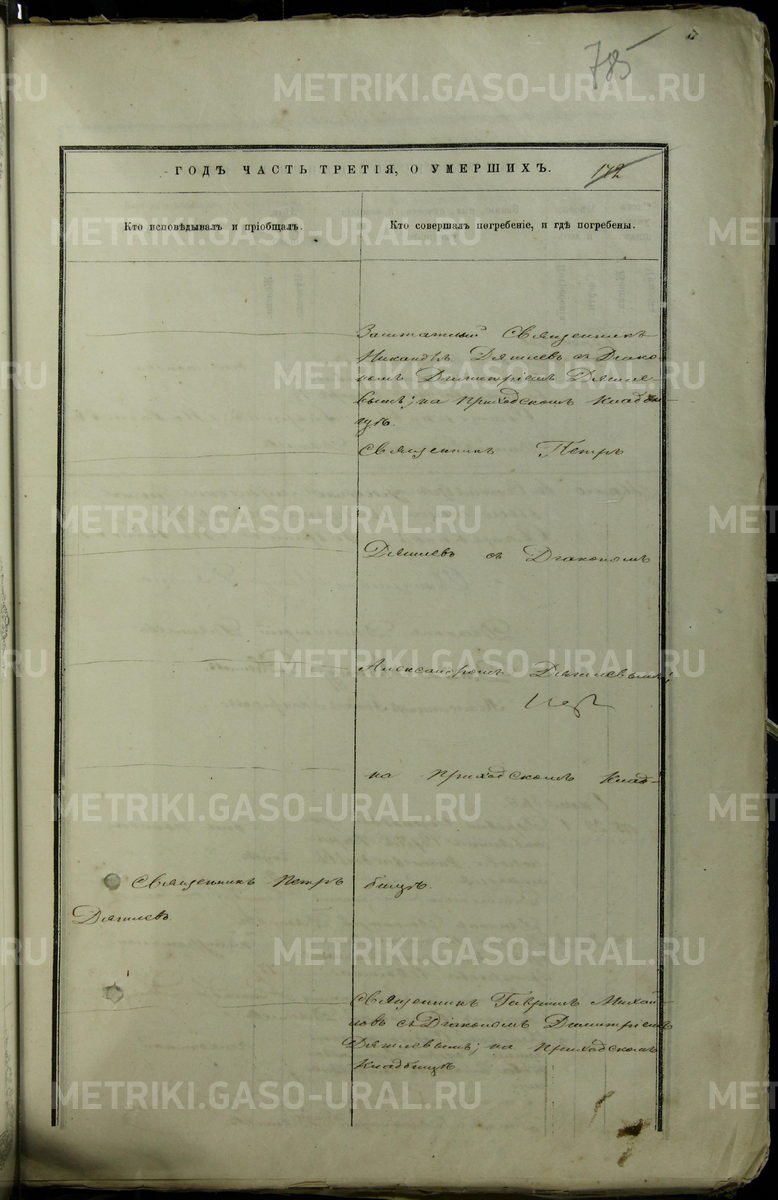 785
ГОДЪ ЧАСТЬ ТРЕТІЯ, О УМЕРШИХЪ.
172
Кто исповѣдывалъ и пріобщалъ.
Кто совершалъ погребеніе, и гдѣ погребены.
Заштатный Священникъ
Никандръ Дягилевъ съ Діако-
номъ Димитріемъ Дягиле-
вымъ; на Приходскомъ Кладби-
щѣ.
Священникъ Петръ
Дягилевъ съ Діакономъ
Александромъ Дягилевымъ;
на Приходскомъ Клад-
Священникъ Петръ
Дягилевъ.
бищѣ.
Священникъ Гавріилъ Михай-
ловъ съ Діакономъ Димитріемъ
Дягилевымъ; на Приходскомъ
Кладбищѣ
METRIKI.GASO-URAL.RU